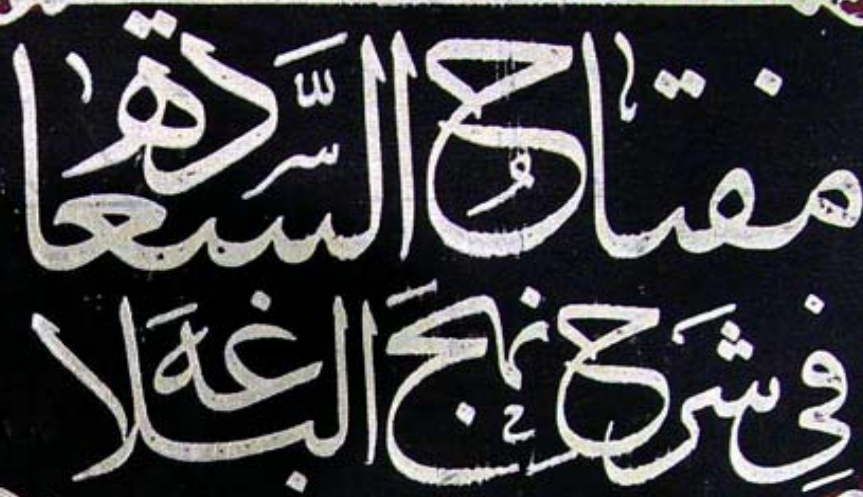 مفتاح السَّعادة
في شَرح نهجَ البلاغَه